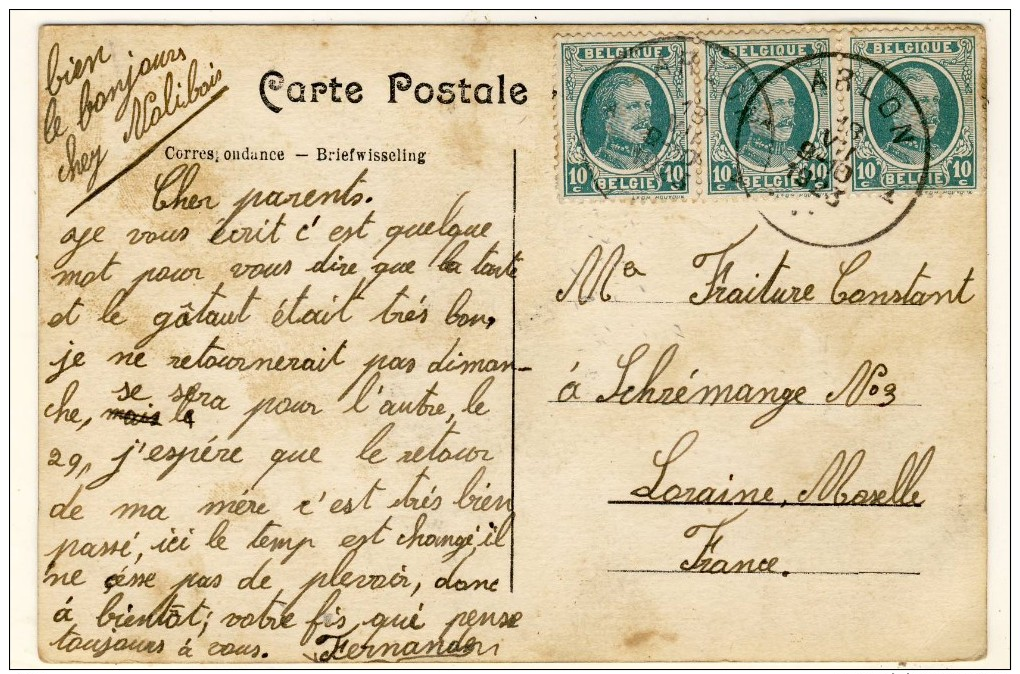 bien
le bonjours
chez Malibois
Carte Postale
Correspondance — Briefwisseling
Cher parents.
Je vous écrit c'est quelque
mot pour vous dire que la tarte
et le gâtaut était trés bon,
je ne retournerait pas diman-
che, se sera pour l'autre, le
29, j'espére que le retour
de ma mére c'est trés bien
passé, ici le temp est changé, il
ne césse pas de plevoir, donc
á bientôt; votre fis qué pense
toujours à vous. Fernand
BELGIQUE
10 c BELGIE 10 c
BELGIQUE
10 c BELGIE 10 c
BELGIQUE
10 c BELGIE 10 c
ARLON
ARLON
13
Fraiture Constant
á Schrémange No 3
Loraine, Moselle
France.